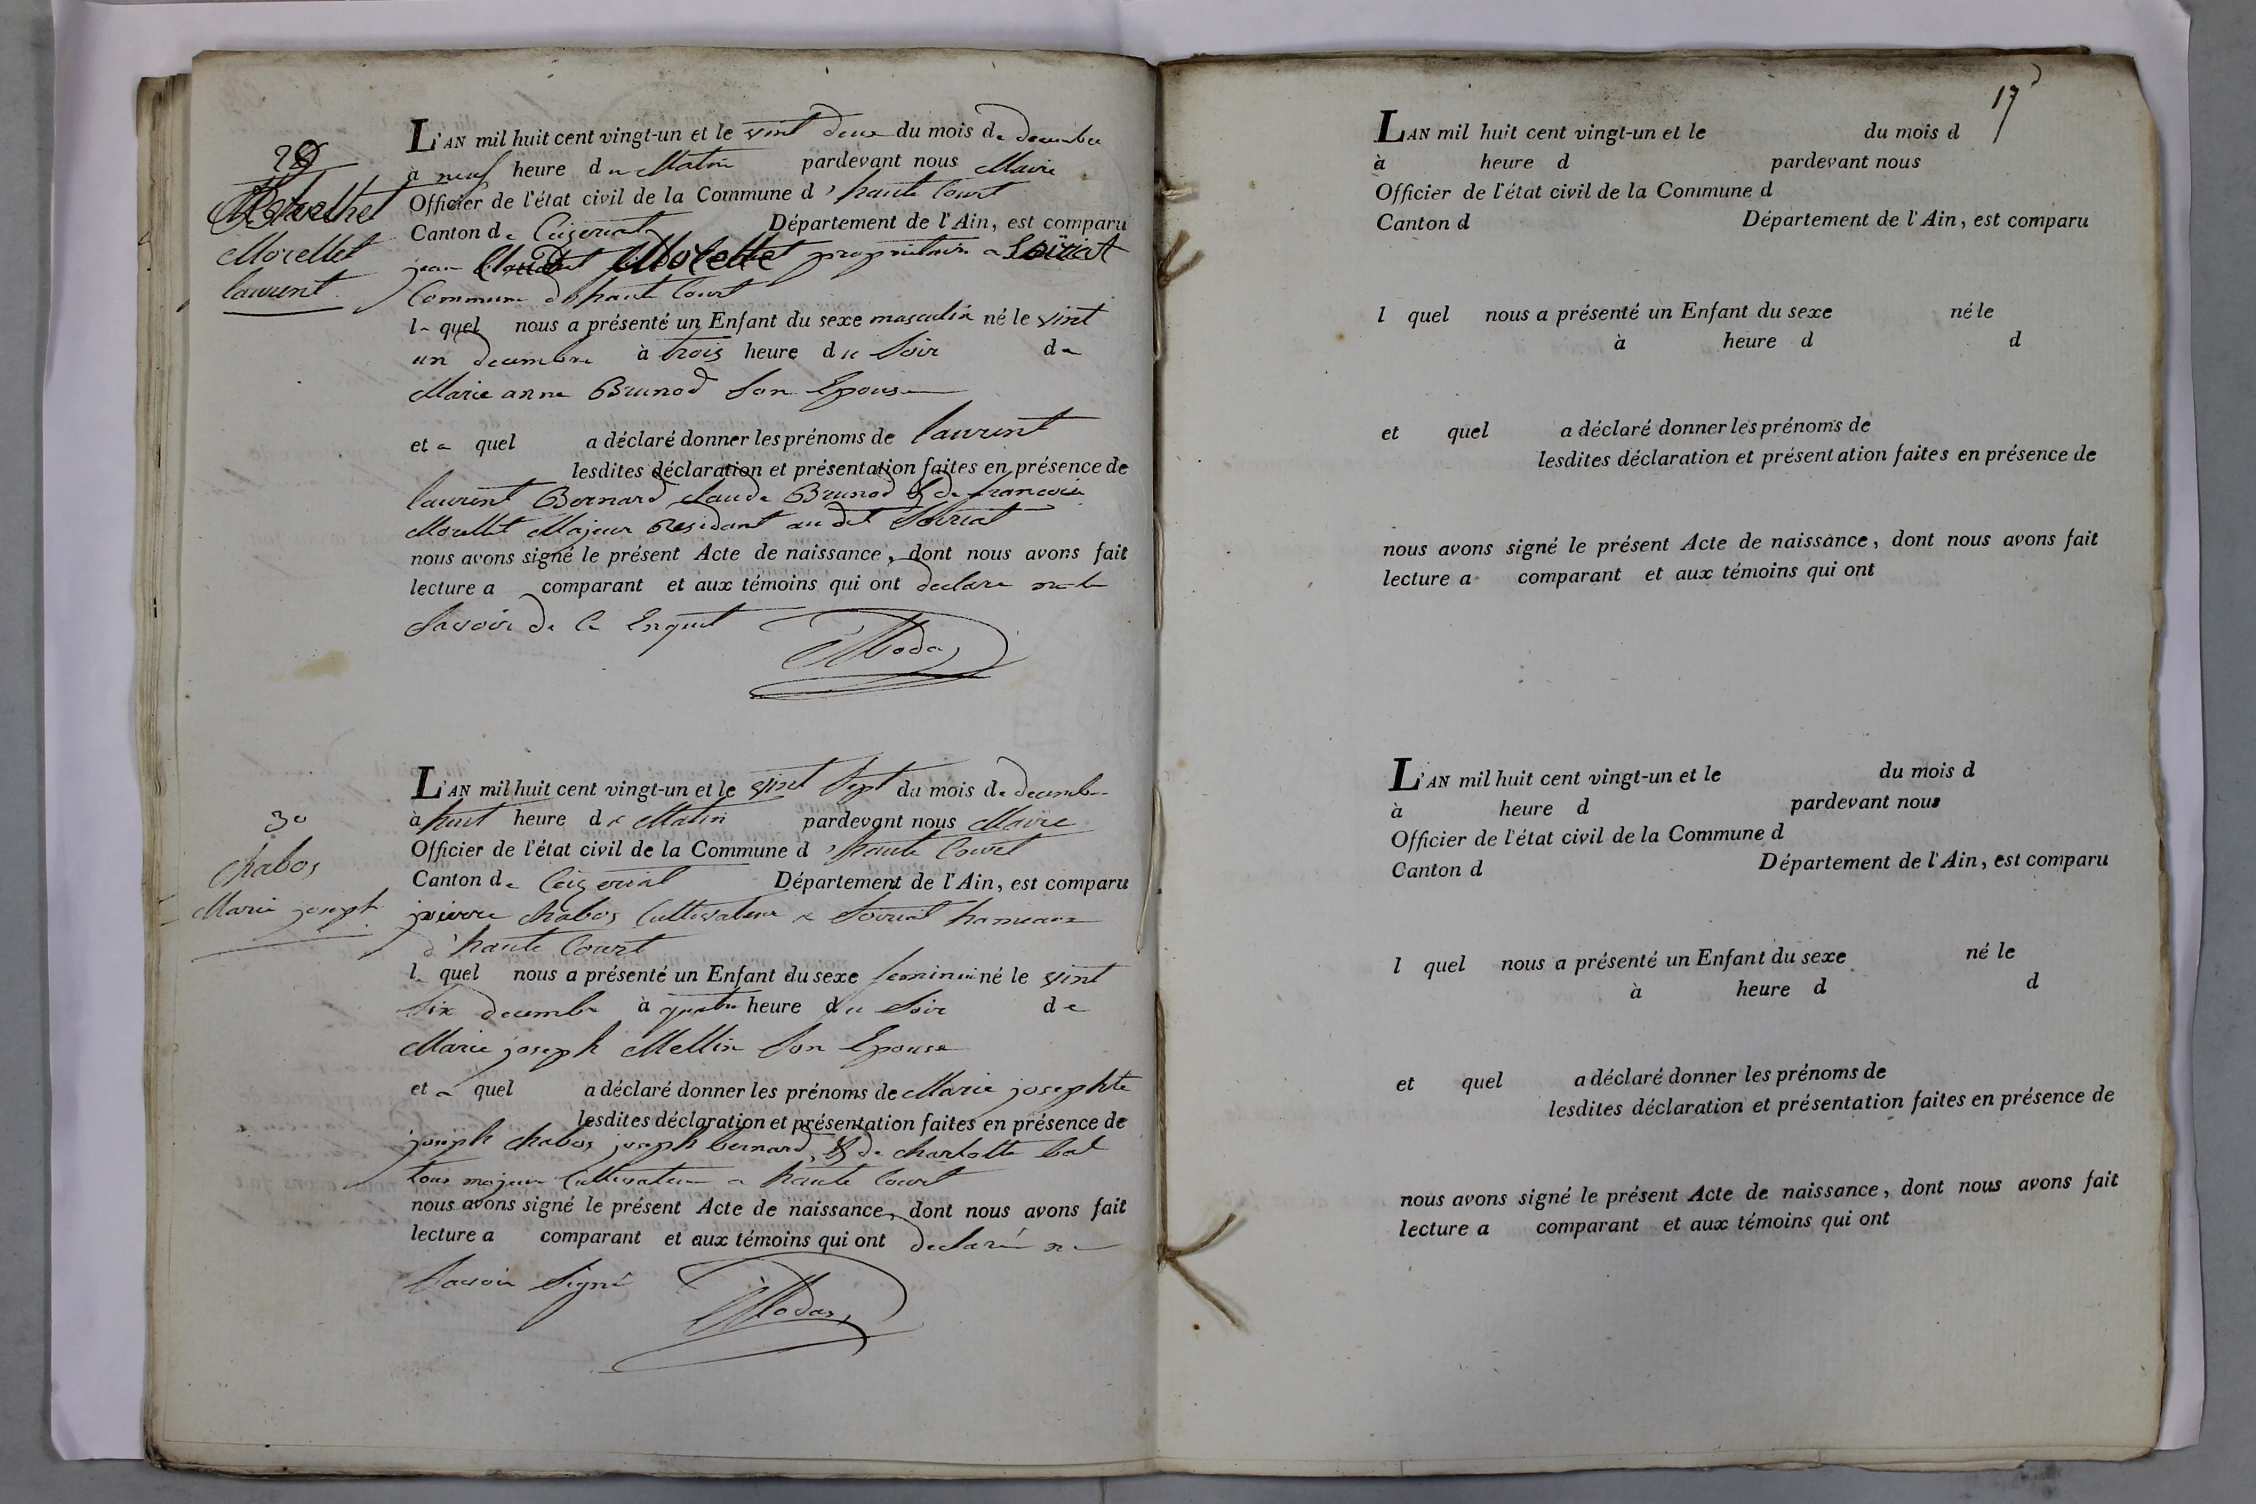 29
Morellet
laurent
L'AN mil huit cent vingt-un et le vint deux du mois de decembre
à neuf heure du Matin pardevant nous Maire
Officier de l'état civil de la Commune d'haute Court
Canton de Ceizeriat Département de l'Ain, est comparu
jean Morellet propriétaire a
Commune d'haute Court
le quel nous a présenté un Enfant du sexe masculin né le vint
un decembre à trois heure du Soir de
Marie anne Brunod Son Epouse
et a quel a déclaré donner les prénoms de laurent
lesdites déclaration et présentation faites en présence de
laurent Bernard claude Brunod & de francois
Morellet Majeur Residant au dit
nous avons signé le présent Acte de naissance, dont nous avons fait
lecture a comparant et aux témoins qui ont declare ne le
Savoir de ce Enquit
30
Chabos
Marie joseph
L'AN mil huit cent vingt-un et le vint Sept du mois de decembre
à huit heure de Matin pardevant nous Maire
Officier de l'état civil de la Commune d'haute Court
Canton de Ceizeriat Département de l'Ain, est comparu
pierre chabos Cultivateur a hameaux
d'haute Court
le quel nous a présenté un Enfant du sexe feminin né le vint
Six decembre à quatre heure du Soir de
Marie joseph Mellin Son Epouse
et a quel a déclaré donner les prénoms de Marie josephte
lesdites déclaration et présentation faites en présence de
joseph chabos joseph bernard & de charlotte
tous majeur Cultivateur a haute Court
nous avons signé le présent Acte de naissance, dont nous avons fait
lecture a comparant et aux témoins qui ont declaré ne
Savoir Signé
17
LAN mil huit cent vingt-un et le du mois d
à heure d pardevant nous
Officier de l'état civil de la Commune d
Canton d Département de l'Ain, est comparu
l quel nous a présenté un Enfant du sexe né le
à heure d d
et quel a déclaré donner les prénoms de
lesdites déclaration et présentation faites en présence de
nous avons signé le présent Acte de naissance, dont nous avons fait
lecture a comparant et aux témoins qui ont
L'AN mil huit cent vingt-un et le du mois d
à heure d pardevant nous
Officier de l'état civil de la Commune d
Canton d Département de l'Ain, est comparu
l quel nous a présenté un Enfant du sexe né le
à heure d d
et quel a déclaré donner les prénoms de
lesdites déclaration et présentation faites en présence de
nous avons signé le présent Acte de naissance, dont nous avons fait
lecture a comparant et aux témoins qui ont